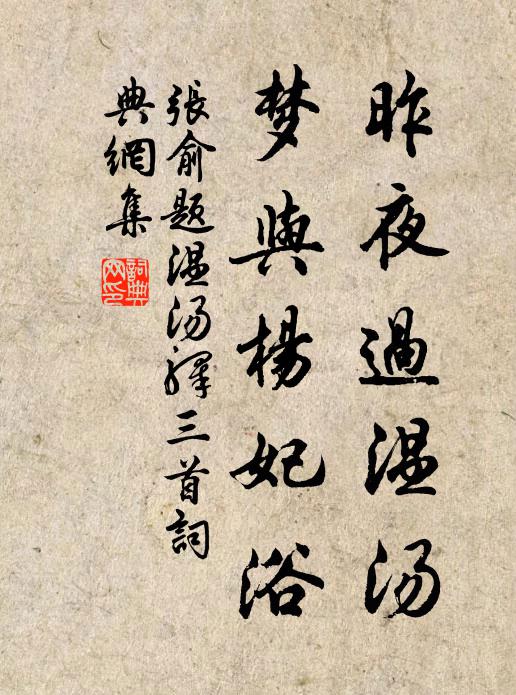 昨夜過温汤
梦與楊妃浴
張俞題温汤驛三首詞
典網集
詞典网印